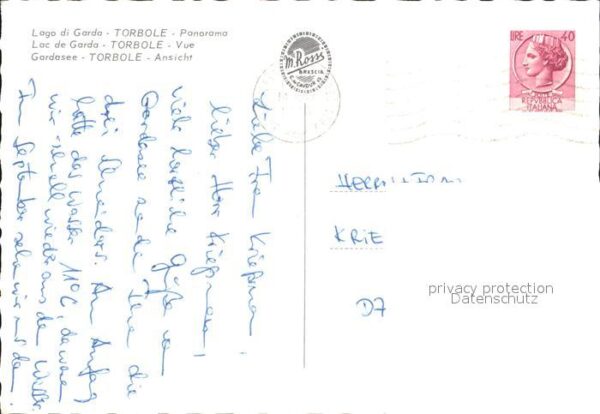 Lago di Garda - TORBOLE - Panorama
Lac de Garda - TORBOLE - Vue
Gardasee - TORBOLE - Ansicht
M. Rossi
BRESCIA
LIRE 40
REPVBBLICA
ITALIANA
Liebe Frau
lieber Herr
viele herzliche Grüße vom
Gardasee senden Ihnen die
drei Schneiders. Am Anfang
hatte das Wasser 11°C, da waren
wir schnell wieder aus dem Wasser.
Im September sehen wir uns dann
KRIE
D7
privacy protection
Datenschutz